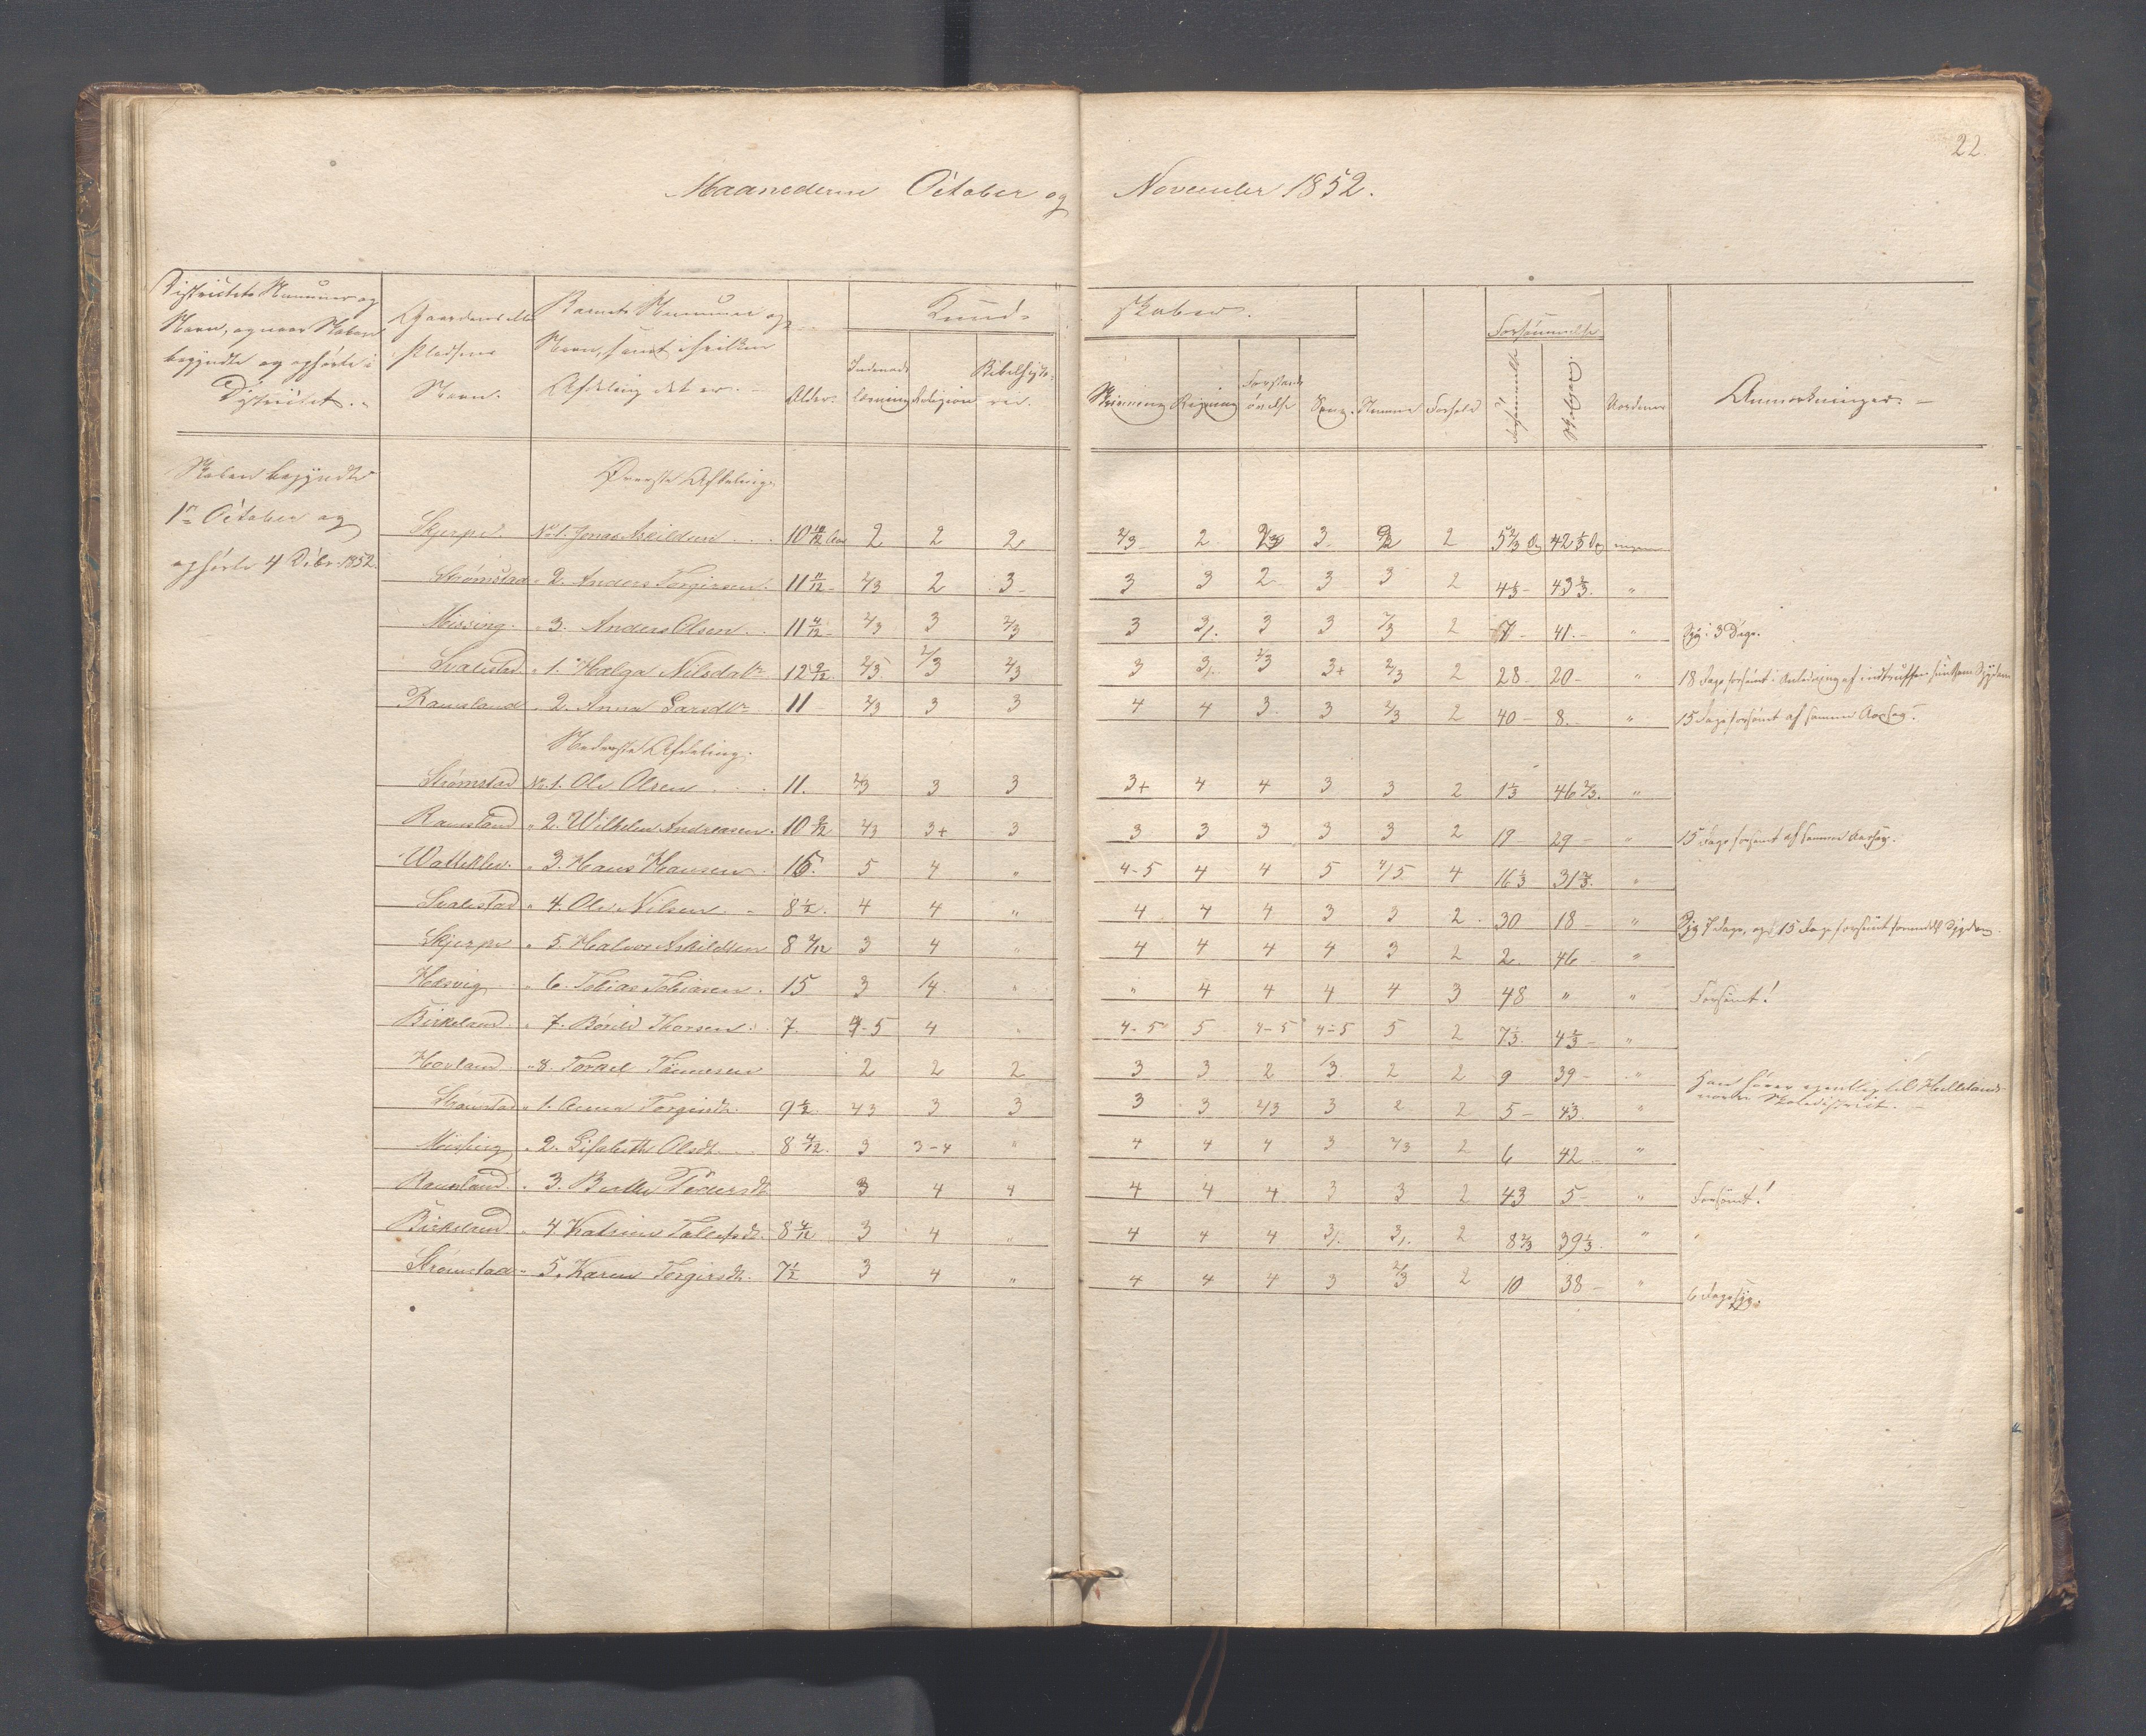 22.
Maanederne October og November 1852.
Districtets Nummer og
Navn, og naar Skolen
begyndte og ophørte i
Districtet.
Gaardens eller
Pladsens
Navn.
Barnets Nummer og
Navn, samt i hvilken
Afdeling det er.
Alder.
Kundskaber.
Indenadslæsning
Religion
Bibelhistorie.
Skrivning
Regning
Forstandsøvelse
Sang.
Stemme
Forhold
Forsømmelse
Anmærkninger.
Skolen begyndte
1ste October og
ophørte 4 Dcbr. 1852.
Øverste Afdeling.
Skjerpe No 1. Jonas Askildsen 10 10/12 Aar 2 2 2 2/3 2 2/3 3 2 2 5 2/3 Dg 42 1/3 Dg ingen
Strømstad " 2. Anders Torgersen 11 11/12 2/3 2 3 3 3 2 3 3 2 4 1/3 43 2/3 "
Missing " 3. Anders Olsen 11 4/12 2/3 3 2/3 3 3/. 3 3 2/3 2 7 41 " Syg i 3 Dage.
Svalestad " 1. Helga Nilsdtr 12 2/12 2/3 2/3 2/3 3 3/. 2/3 3+ 2/3 2 28 20 " 18 Dage forsømt i Anledning af indtruffen Sygdom
Ramsland " 2. Anna Larsdtr 11 2/3 3 3 4 4 3 3 2/3 2 40 8 " 15 Dage forsømt af samme Aarsag.
Nederste Afdeling.
Strømstad No 1. Ole Olsen 11. 2/3 3 3 3+ 4 4 3 3 2 1 1/3 46 2/3 "
Ramsland " 2. Wilhelm Andreasen 10 9/12 2/3 3+ 3 3 3 3 3 3 2 19 29 " 15 Dage forsømt af samme Aarsag.
" 3. Hans Hansen 15. 5 4 " 4-5 4 4 5 4/5 4 16 1/3 31 2/3 "
Svalestad " 4. Ole Nilsen 8 1/2 4 4 " 4 4 4 3 3 2 30 18 " Syg 7 Dage, og 15 Dage forsømt formedelst Sygdom.
Skjerpe " 5. Halvor Askildsen 8 2/12 3 4 " 4 4 4 4 3 2 2 46 "
Hæsvig " 6. Tobias Tobiasen 15 3 4 " " 4 4 4 4 3 48 " " Forsømt!
Birkeland " 7. Thorsen 7. 4-5 4 4-5 5 4-5 4-5 5 2 7 1/3 4 2/3 "
Hovland " 8. Torkel Tønnesen 2 2 2 3 3 2 3 2 2 9 39 " Han hører egentlig til Hellelands
nordre Skoledistrict.
Strømstad " 1. Anna Torgersdtr 9 1/2 2/3 3 3 3 3 2/3 3 2 2 5 43 "
Missing " 2. Elisabeth Olsdtr 8 4/12 3 3-4 " 4 4 4 3 2/3 2 6 42 "
Ramsland " 3. Berthe Pedersdtr 3 4 4 4 4 4 3 3 2 43 5 " Forsømt!
Birkeland " 4. Katrine 8 4/12 3 4 " 4 4 4 3/. 3/. 2 8 2/3 39 1/3 " "
Strømstad " 5. Karen Torgersdtr 7 1/2 3 4 " 4 4 4 3 2/3 2 10 38 " 6 Dage syg.